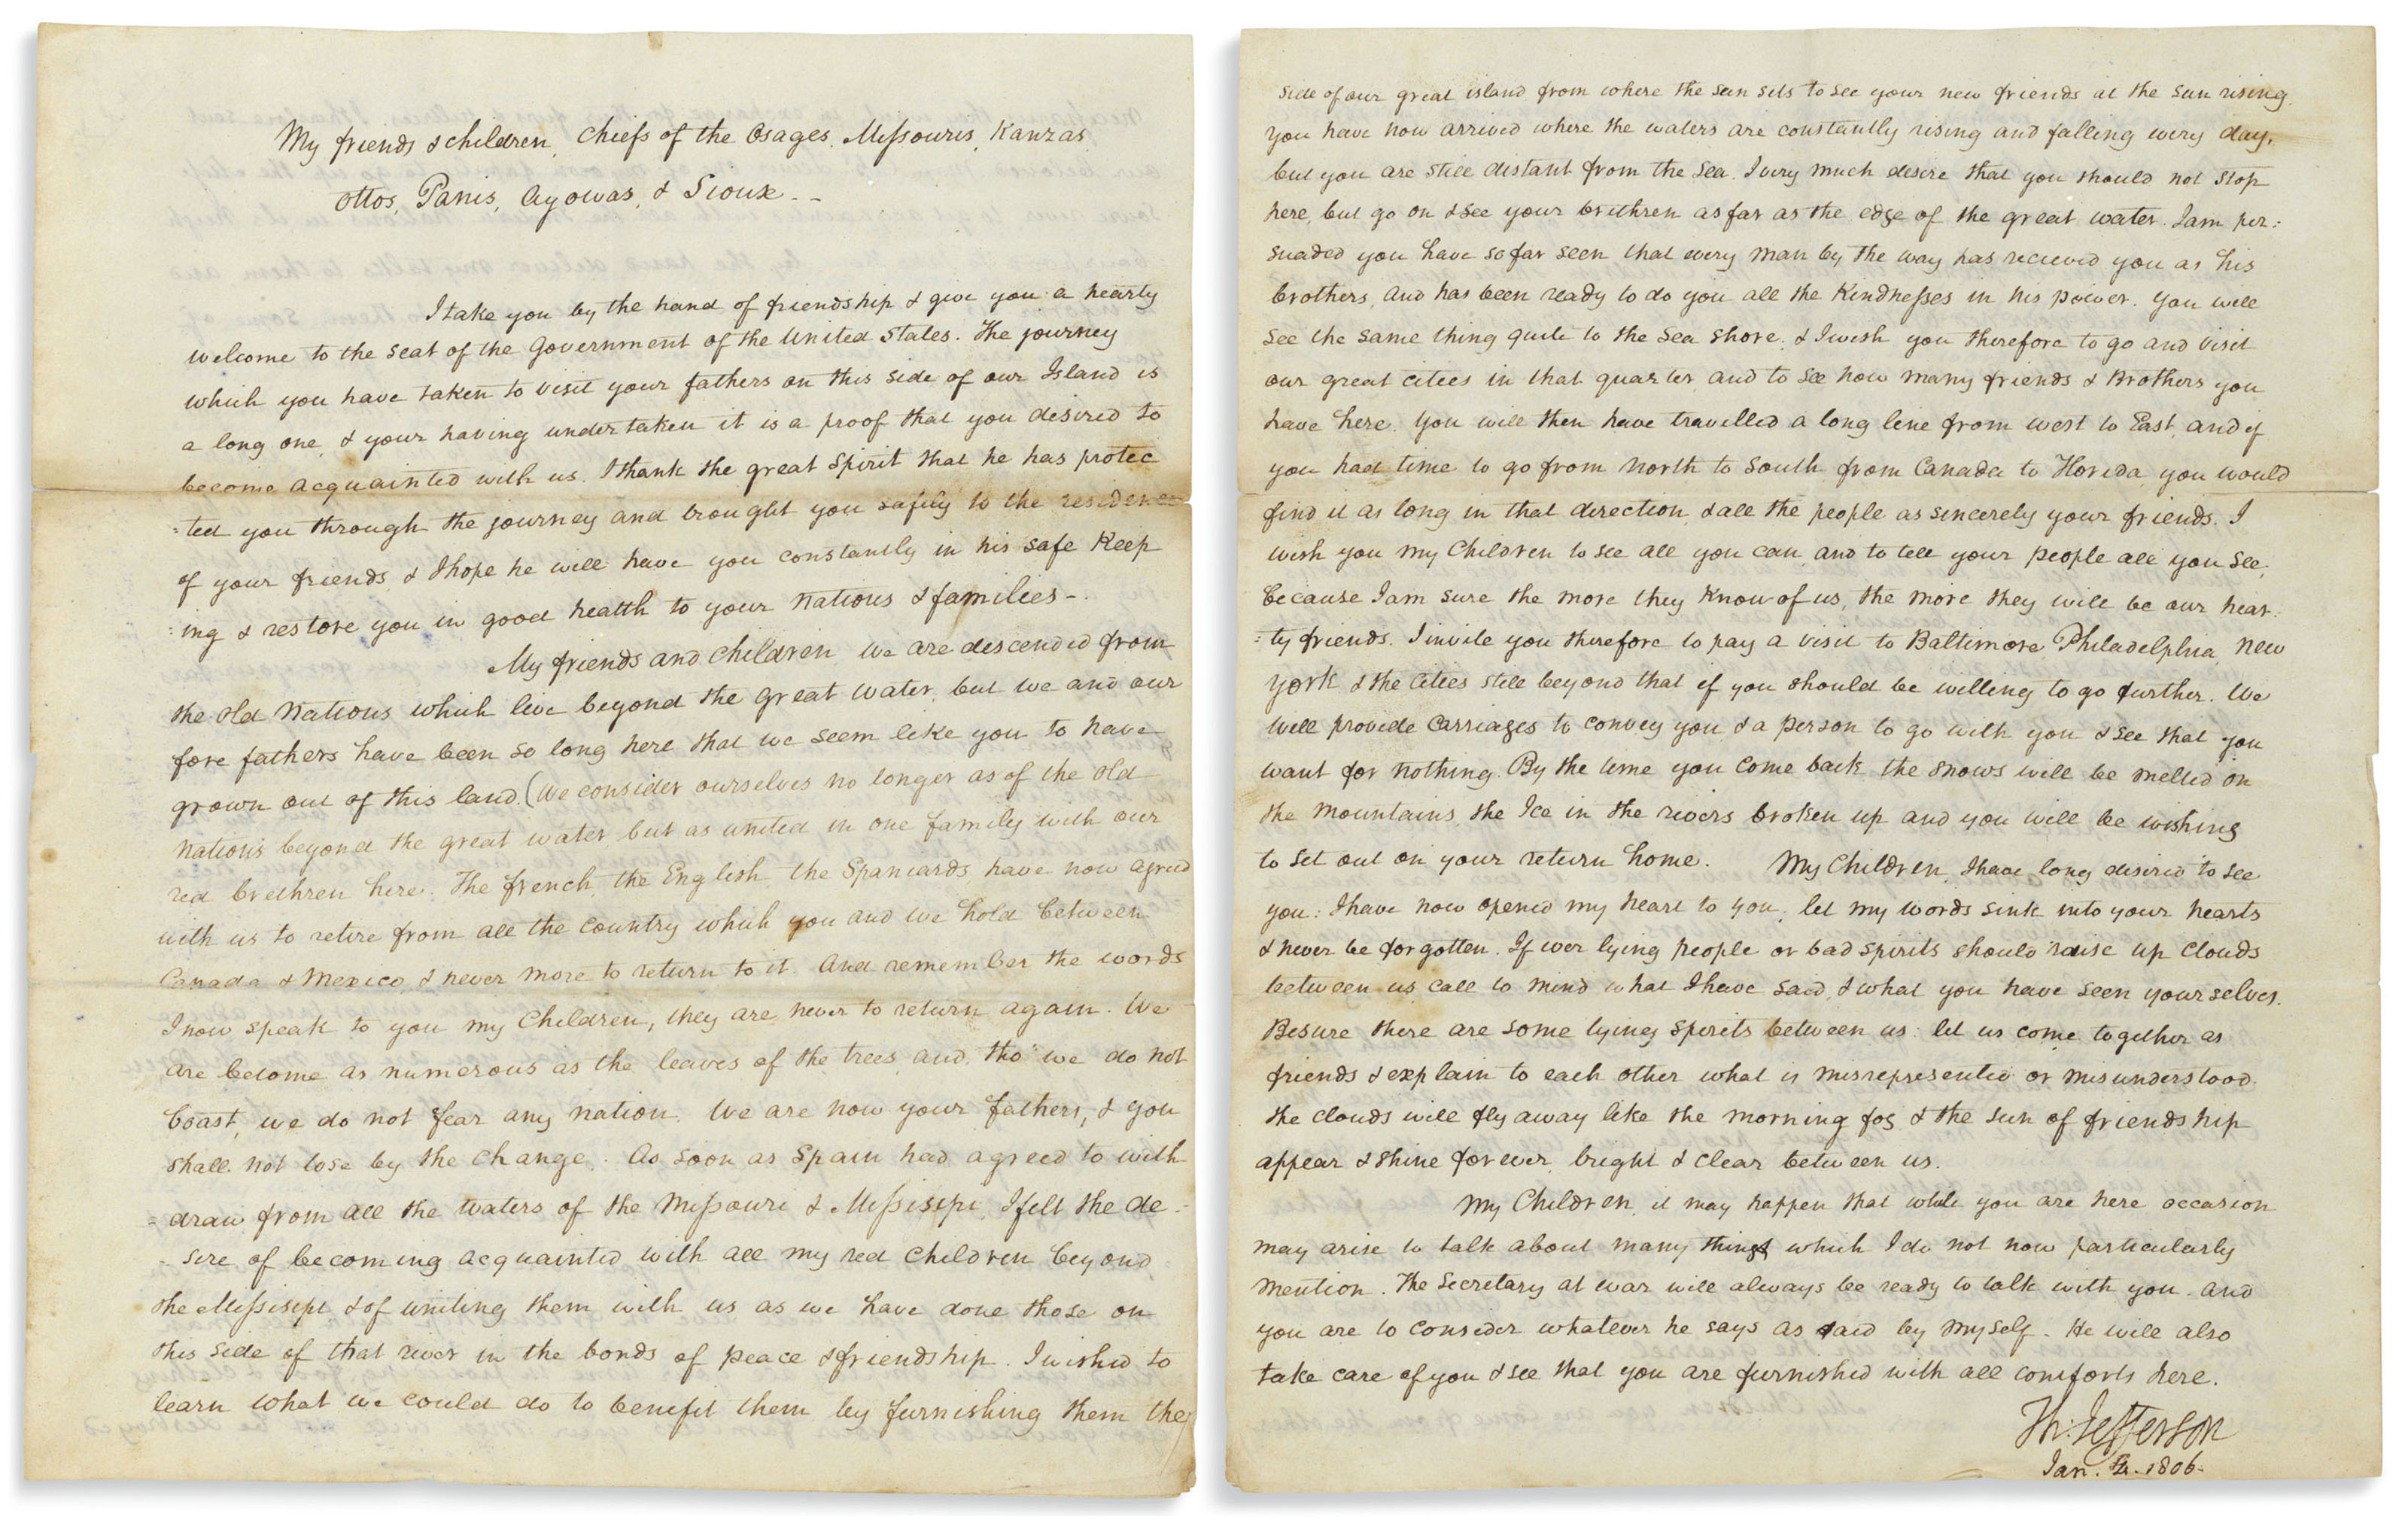 My friends & children, Chiefs of the Osages, Missouris, Kanzas,
Ottos, Panis, Ayowas, & Sioux--
I take you by the hand of friendship & give you a hearty
welcome to the seat of the Government of the United States. The journey
which you have taken to visit your fathers on this side of our Island is
a long one, & your having undertaken it is a proof that you desired to
become acquainted with us. I thank the great Spirit that he has protec
=ted you through the journey and brought you safely to the residence
of your friends, & I hope he will have you constantly in his safe Keep
:ing & restore you in good health to your Nations & families-.
My friends and children, We are descended from
the old Nations which live beyond the great water, but we and our
fore fathers have been so long here that we seem like you to have
grown out of this land. (We consider ourselves no longer as of the old
Nations beyond the great water, but as united in one family with our
red brethren here. The french, the English, the Spaniards have now agreed
with us to retire from all the country which you and we hold between
Canada & Mexico, & never more to return to it. And remember the words
I now speak to you my Children, they are never to return again. We
are become as numerous as the leaves of the trees, and, tho' we do not
boast, we do not fear any nation. We are now your fathers, & you
shall not lose by the change. As soon as Spain had agreed to with
=draw from all the waters of the Missouri & Missisipi, I felt the de-
-sire of becoming acquainted with all my red Children beyond
the Missisipi & of uniting them with us as we have done those on
this side of that river in the bonds of peace & friendship. I wished to
learn what we could do to benefit them by furnishing them the
side of our great island from where the sun sets to see your new friends at the sun rising.
You have now arrived where the waters are constantly rising and falling every day,
but you are still distant from the sea. I very much desire that you should not stop
here, but go on & see your brethren as far as the edge of the great water. I am per:
suaded you have so far seen that every man by the way has recieved you as his
brothers, and has been ready to do you all the Kindnesses in his power. You will
see the same thing quite to the sea shore; & I wish you therefore to go and visit
our great cities in that quarter, and to see how many friends & Brothers you
have here. You will then have travelled a long line from west to East, and if
you had time to go from North to South, from Canada to Florida, you would
find it as long in that direction, & all the people as sincerely your friends. I
wish you my Children to see all you can, and to tell your people all you see;
because I am sure the more they Know of us, the more they will be our hear:
=ty friends. I invite you therefore to pay a visit to Baltimore, Philadelphia, New
York & the Cities still beyond that if you should be willing to go further. We
will provide Carriages to convey you & a person to go with you & see that you
want for nothing. By the time you come back the snows will be melted on
the mountains, the Ice in the rivers broken up and you will be wishing
to set out on your return home. My Children, I have long desired to see
you: I have now opened my heart to you; let my words sink into your hearts
& never be forgotten. If ever lying people or bad spirits should raise up clouds
between us, call to mind what I have said, & what you have seen yourselves.
Be sure there are some lying spirits between us: let us come together as
friends & explain to each other what is misrepresented or misunderstood.
the clouds will fly away like the morning fog & the sun of friendship
appear & shine for ever, bright & clear between us.
My Children, it may happen that while you are here occasion
may arise to talk about many things which I do not now particularly
mention. The Secretary at war will always be ready to talk with you. and
you are to consider whatever he says as said by myself. He will also
take care of you & see that you are furnished with all comforts here.
Th: Jefferson
Jan. 4. 1806.